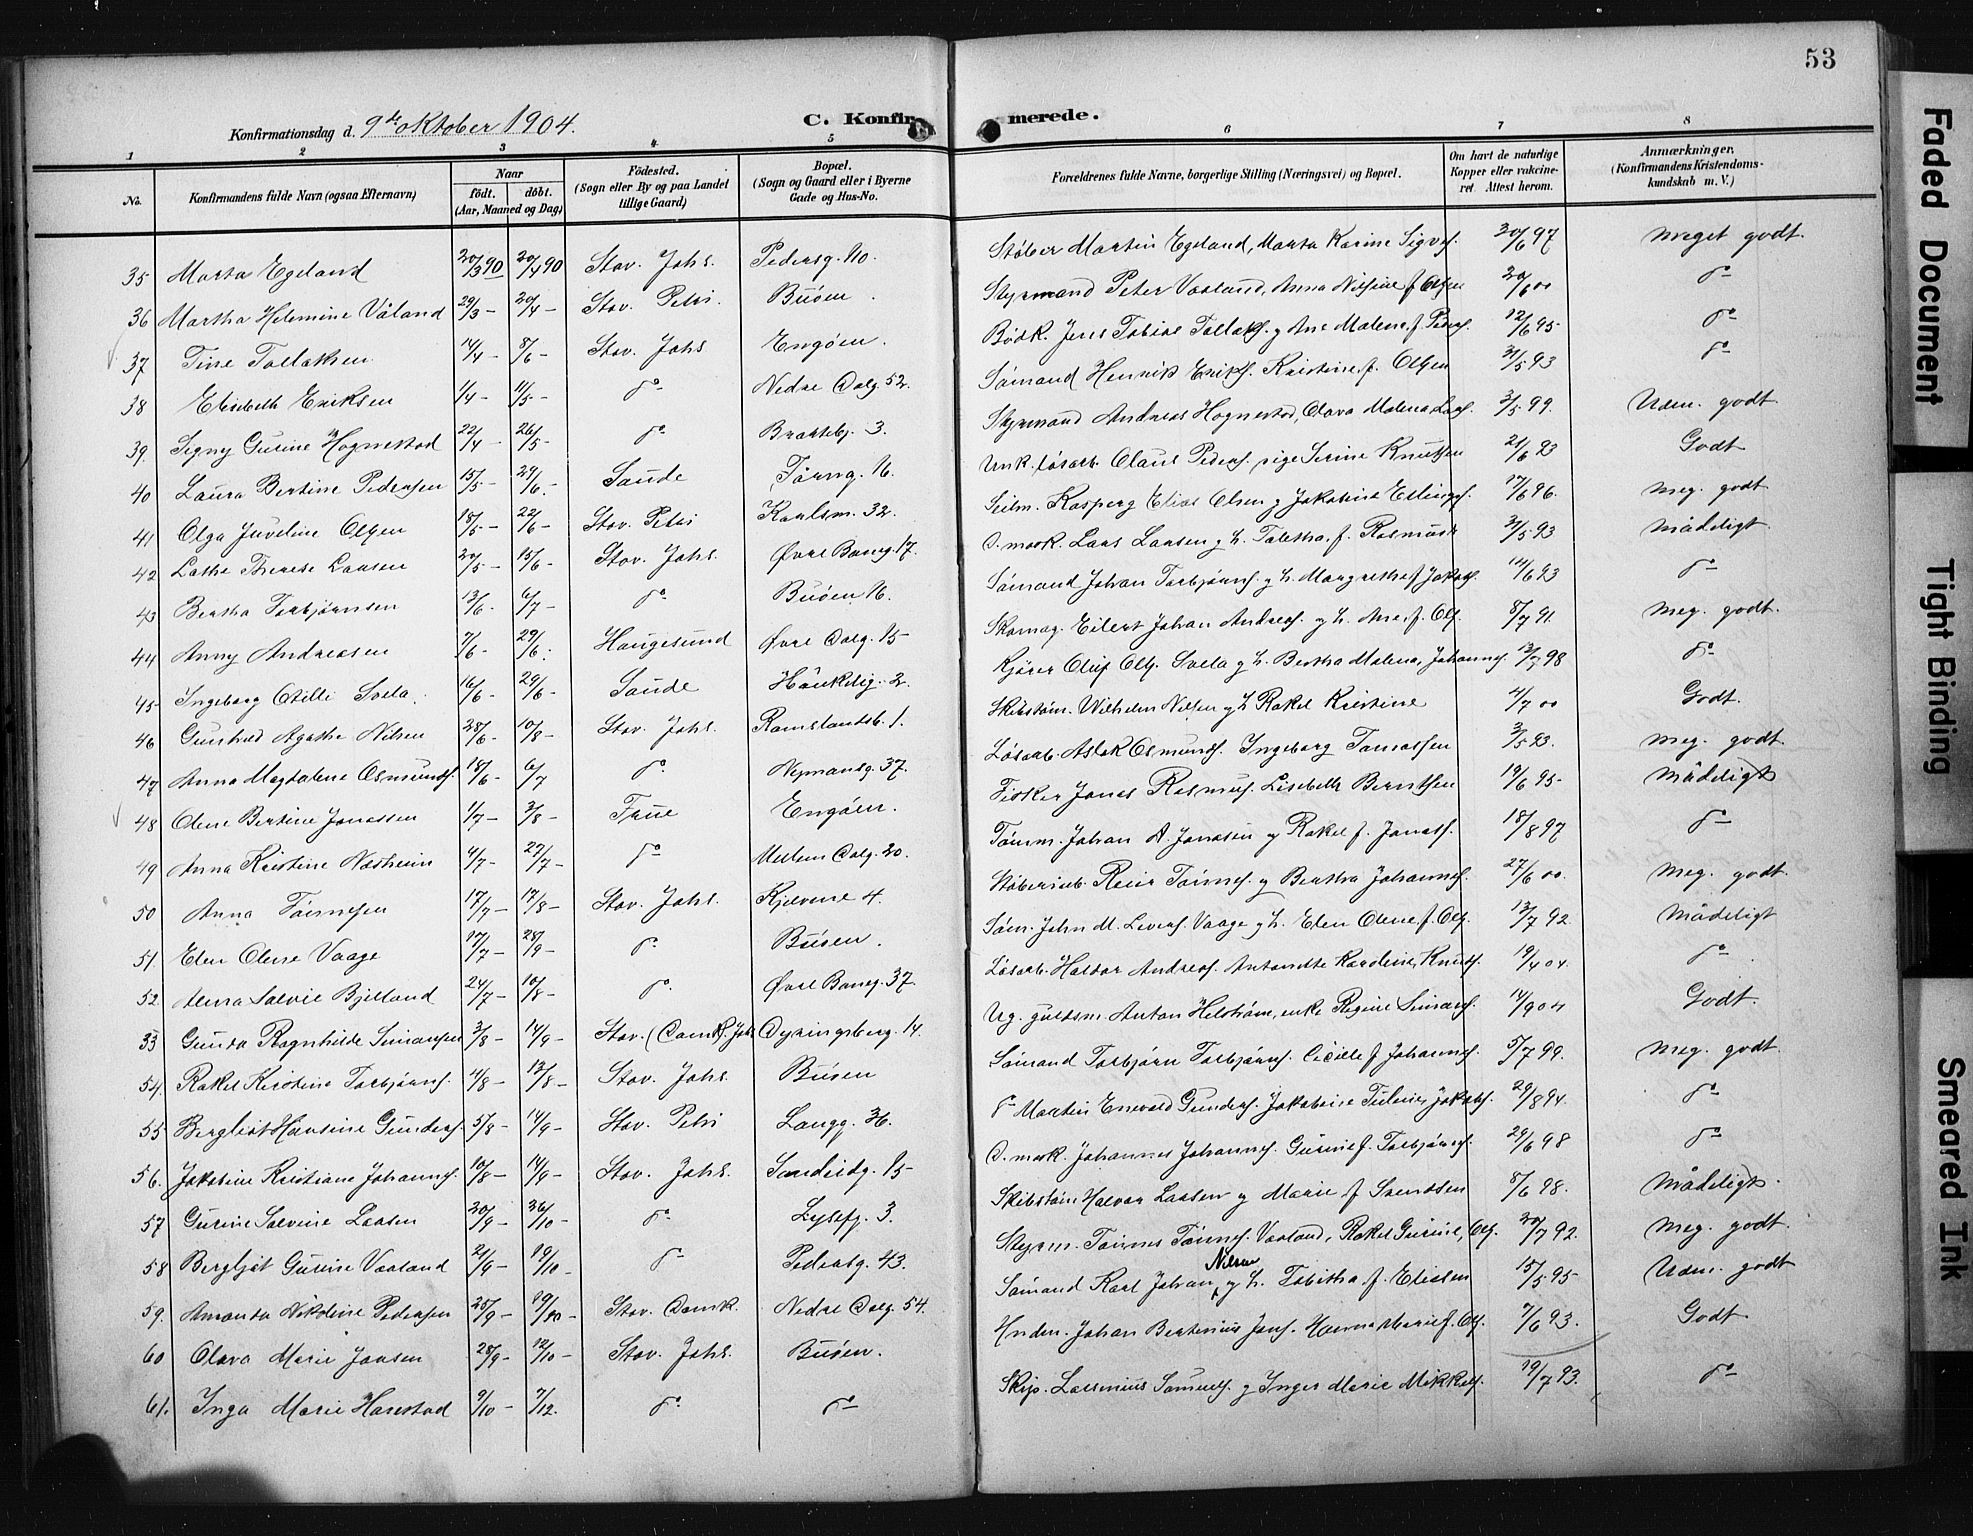 53
Konfirmationsdag d. 9de oktober 1904.
C. Konfirmerede.
1 2 3 4 5 6 7 8
No. Konfirmandens fulde Navn (ogsaa Efternavn) Naar født. døbt. (Aar, Maaned og Dag) Födested. (Sogn eller By og paa Landet tillige Gaard) Bopæl. (Sogn og Gaard eller i Byerne Gade og Hus-No. Forældrenes fulde Navne, borgerlige Stilling (Næringsvei) og Bopæl. Om havt de naturlige Kopper eller vakcineret. Attest herom. Anmærkninger. (Konfirmandens Kristendomskundskab m. V.)
35 Marta Egeland 20/3 90 20/4 90 Stav. Johs. Pedersg. 110. Støber Martin Egeland, Marta Karine Sigvs. 30/6 97 Meget godt.
36 Martha Helemine Våland 29/3 - 20/4 - Stav. Petri Buøen. Styrmand Peter Vaaland, Anna Nilsine f. Olsen 20/6 00 do
37 Tine Tollaksen 14/4 - 8/6 - Stav. Johs Engøen. Bødk. Jens Tobias Tollaks. g Ane Malene f. Peders. 12/6 95 do
38 Elisebeth Eriksen 1/4 - 11/5 - do Nedre Dalg. 52. Sømand Henrik Eriks. Kristine f. Olsen 31/5 93 do
39. Signy Gurine Hognestad 22/4 - 26/5 - do Brattebg. 3. Styrmand Andreas Hognestad, Olava Malena Lars. 3/5 99. Udm. godt
40 Laura Bertine Pedersen 15/5 - 29/6. Saude Tårng. 16. Unk. løsarb. Claus Peders. pige Serine Knutsen 21/6 93 Godt
41 Olga Juveline Olsen 18/5 - 22/6 - Stav. Petri Karlsm. 32. Seilm. Kasperg Elias Olsen g Jakobine Erlings. 17/6 96. Meg. godt
42 Lothe Therese Larsen 20/5 - 15/6 - Stav. Johs. Øvre Baneg. 17. D. mask. Lars Larsen g h. Taletha f. Rasmuss 31/5 93 Mådeligt
43 Bertha Torbjørnsen 13/6. 6/7 - do Buøen 16. Sømand Johan Torbjørns. g h. Margrethe f. Jakobs. 14/6 93 do
44 Anny Andreasen 7/6 - 29/6. Haugesund Øvre Dalg. 15 Skomag. Eilert Johan Andreas. g h. Ane f. Ols. 8/7 91. Meg. godt.
45 Ingeborg Otilli Svela. 16/6 - 29/6 - Saude Håukelig. 2. Kjører Oluf Ols. Svela g h. Bertha Malena, Johanns. 12/7 98 do
46 Gunhild Agathe Nilsen 28/6 - 10/8 - Stav. Johs. Ramslandsb. 1. Skibstøm. Wilhelm Nilsen g h Rakel Kristine 4/7 00 Godt.
47 Anna Magdalene Osmunds. 18/6 - 6/7 do Nymansg. 37. Løsarb. Aslak Osmunds. Ingeborg Tomassen 3/5 93. Meg. godt
48 Olene Bertine Jonassen 1/7 - 3/8 - True Engøen. Fisker Jonas Rasmus. Lisebeth Berntsen 19/6 95 - Mådeligt
49 Anna Kristine Næsheim 4/7 - 27/7 - do Mellem Dalg. 20. Tømm. Johan A Jonasen g Rakel f. Jonass. 18/8 97 do
50 Anna Tønnesen 17/7 - 17/8 - Stav. Johs. Kjelvene 4. Støberiarb. Reier Tønnes. g Bertha Johanns. 27/6 00. Meg. godt.
51. Elen Olene Vaage 17/7 - 28/9 - do Buøen. Søm. John M. Levers. Vaage g h. Elen Olene f. Ols. 13/7 92. Mådeligt
52. Alma Salvie Bjelland 24/7 - 10/8 - do. Øvre Baneg. 37. Løsarb. Haldor Andreas. Antonette Kardine, Knuds. 19/4 04. do
53 Gunda Ragnhilde Simonsen 3/8 - 14/9 - Stav. (Domk. Joh. Dyringsberg. 14. Ug. guldsm. Anton Helstrøm, enke Regine Simons. 14/9 04 Godt.
54. Rakel Kirstine Torbjørns. 4/8 - 17/8 - Stav. Johs. Buøen Sømand Torbjørn Torbjørns. Cicilie f. Johanns. 5/7 99. Meg. godt
55 Bergliot Hansine Gunders. 5/8 - 14/9 - Stav. Petri Langg. 36. do Martin Enevald Gunders. Jakobine Juline, Jakobs. 29/8 94. do
56. Jakobine Kristiane Johanns. 10/8 - 14/9 - Stav. Johs. Sandeidg. 15 - D. mask. Johannes Johanns. Gurine f. Torbjørns. 29/6 98 do
57 Gurine Salvine Larsen 20/9 - 26/10 - do Lysefj. 3. Skibstøm Halvar Larsen g Marie f Svendsen 8/6 98. Mådeligt.
58 Bergljot Gurine Vaaland 21/9 - 19/10 - do Pedersg. 43. Styrm. Tønnes Tønnes. Vaaland, Rakel Gurine, Ols. 20/7 92. Meg. godt.
59. Amanda Nikoline Pedersen 25/9 - 19/10 - Stav. Domk. Nedre Dalg. 54. Sømand Karl Johan Nilsen g h. Tobitha f. Eliasen 15/5 95 - Udm. godt
60 Olava Marie Jansen 28/9 - 12/10 - Stav. Johs. Buøen. Hnden. Johan Bertinius Jans. Hanna Marie f. Ols. 7/6 93. Godt
61. Inga Marie Hanestad 9/10 - 7/12. do do Skip. Lasemius Samuels. g Inger Marie Mikkels. 19/7 93. do
Faded Document
Tight Binding
Smeared Ink